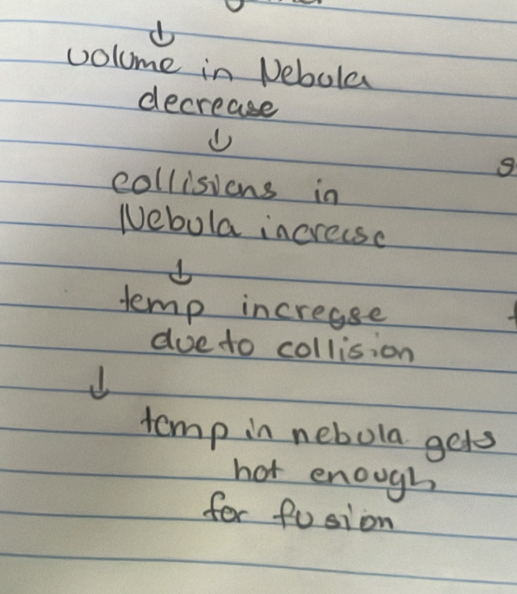 ↓
volume in Nebula
decrease
↓
collisions in
Nebula increase
↓
temp increase
due to collision
↓
temp in nebula gets
hot enough
for fusion